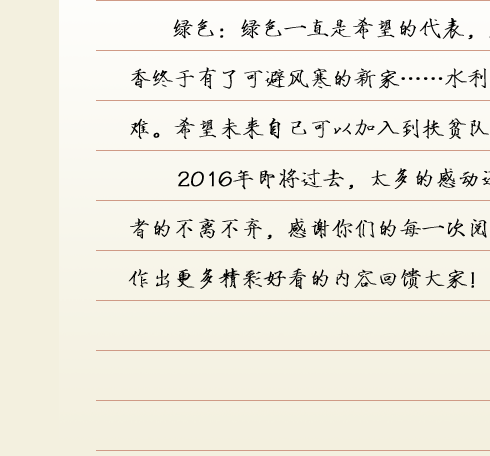 绿色：绿色一直是希望的代表，
香终于有了可避风寒的新家……水利
难。希望未来自己可以加入到扶贫队
2016年即将过去，太多的感动还
者的不离不弃，感谢你们的每一次阅
作出更多精彩好看的内容回馈大家！